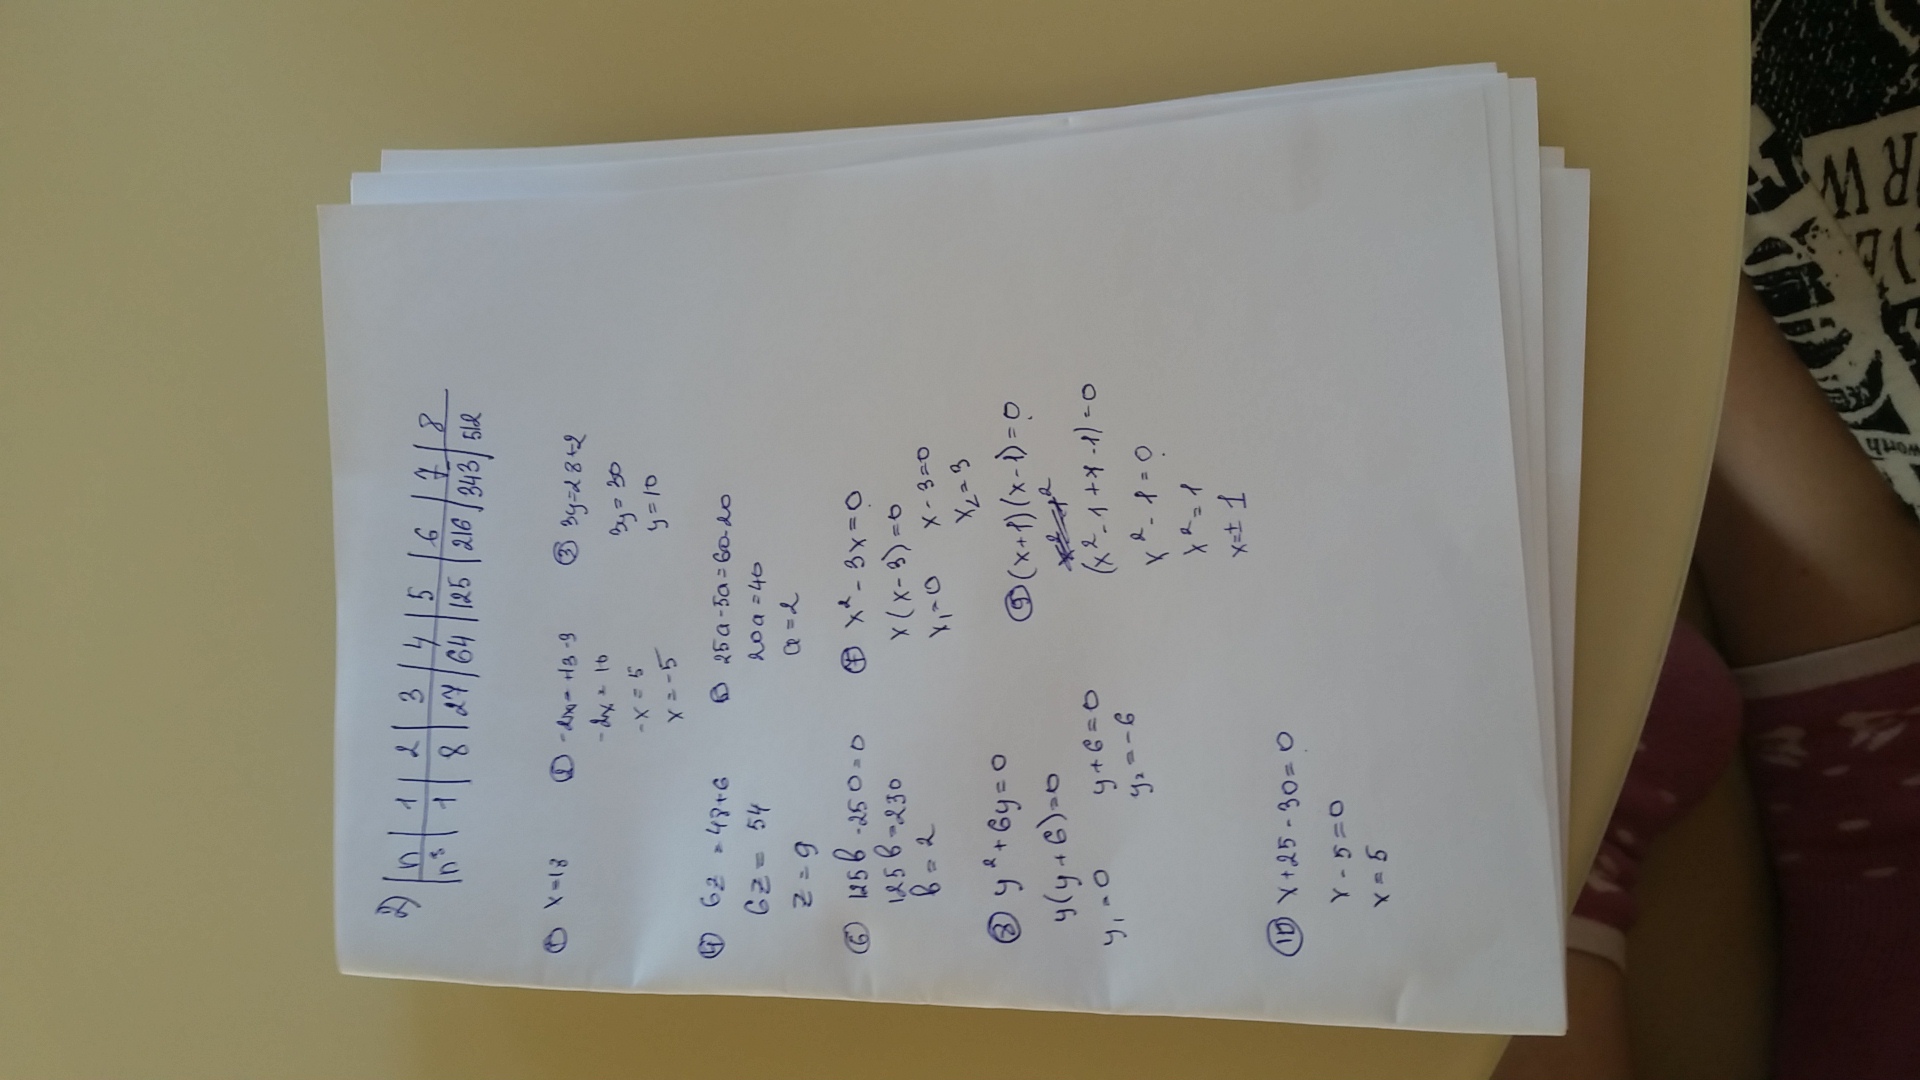 2) n | 1 | 2 | 3 | 4 | 5 | 6 | 7 | 8
n³ | 1 | 8 | 27 | 64 | 125 | 216 | 343 | 512
① x=18
② -2x=+13-3
-2x=10
-x=5
x=-5
③ 3y=28+2
3y=30
y=10
④ 6z=48+6
6z=54
z=9
⑤ 25a-5a=60-20
20a=40
a=2
⑥ 125b-250=0
125b=250
b=2
⑦ x²-3x=0
x(x-3)=0
x₁=0 x-3=0
x₂=3
⑧ y²+6y=0
y(y+6)=0
y₁=0 y+6=0
y₂=-6
⑨ (x+1)(x-1)=0
(x²-1+x-1)=0
x²-1=0
x²=1
x=±1
⑩ x+25-30=0
x-5=0
x=5
RW
worth